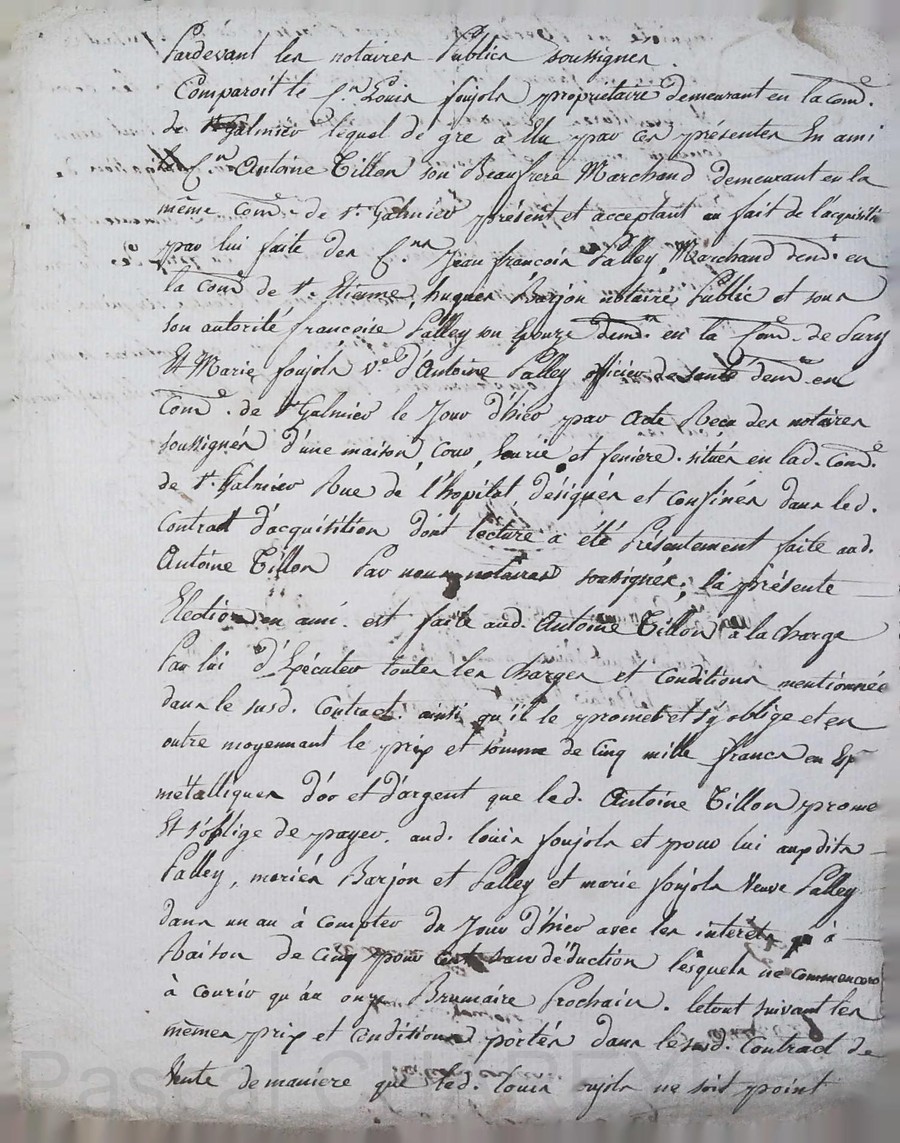 Pardevant les notaires Publics soussignés.
Comparoit le C.en Louis foujols propriétaire demeurant en la com.e
de St Galmier lequel de gré a Elu par ces présentes En ami
le C.en Antoine Tillon son Beaufrere Marchand demeurant en la
même com.e de St. Galmier présent et acceptant au fait de l'acquisiti
par lui faite des C.ens Jean françois Palley, Marchand dem.t en
la com.e de St. Etienne, hugues Barjon notaire Public et sous
son autorité françoise Palley son Epouze dem.ts en la Com.e de Sury
Et Marie foujols v.e d'Antoine Palley officier de santé dem.te en
Com.e de St Galmier le Jour d'hier par acte Recu des notaires
soussignés d'une maison, cour, Ecurie et feniere situés en lad. Com.e
de St. Galmier Rue de l'hopital, désignés et Confinés dans led.
Contract d'acquisition dont lecture a été Présentement faite aud.
Antoine Tillon Par nous notaires soussignés; la présente
Election en ami est faite aud. Antoine Tillon à la charge
Par lui d'Exécuter toutes les Charges et Conditions mentionnée
dans le susd. Contract ainsi qu'il le promet et s'y oblige et en
outre moyennant le prix et somme de Cinq mille francs en Esp
métalliques d'or et d'argent que led. Antoine Tillon prome
Et s'oblige de payer aud. louis foujols et pour lui auxdits
Palley, mariés Barjon et Palley et marie foujols Veuve Palley
dans un an à compter du Jour d'hier avec les interets à
Raison de Cinq pour cent sans déduction lesquels ne commenceron
à courir qu'au onze Brumaire Prochain. le tout suivant les
mêmes prix et Conditions portés dans le susd. Contract de
Vente de maniere que led. louis oujols ne soit point
Pascal